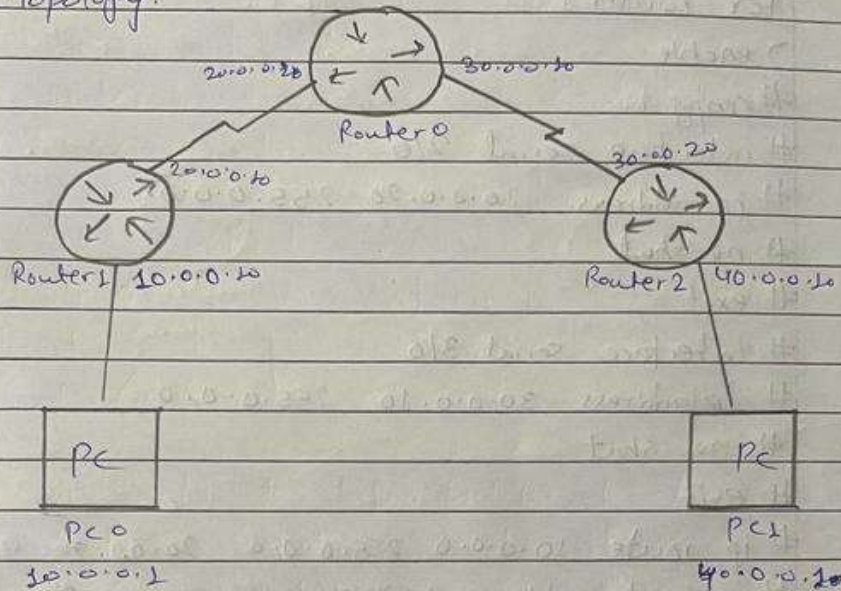 Topology:
20.0.0.20
30.0.0.10
Router 0
20.0.0.10
30.0.0.20
Router 1
10.0.0.10
Router 2
40.0.0.10
PC
PC
PC 0
PC1
10.0.0.1
40.0.0.1